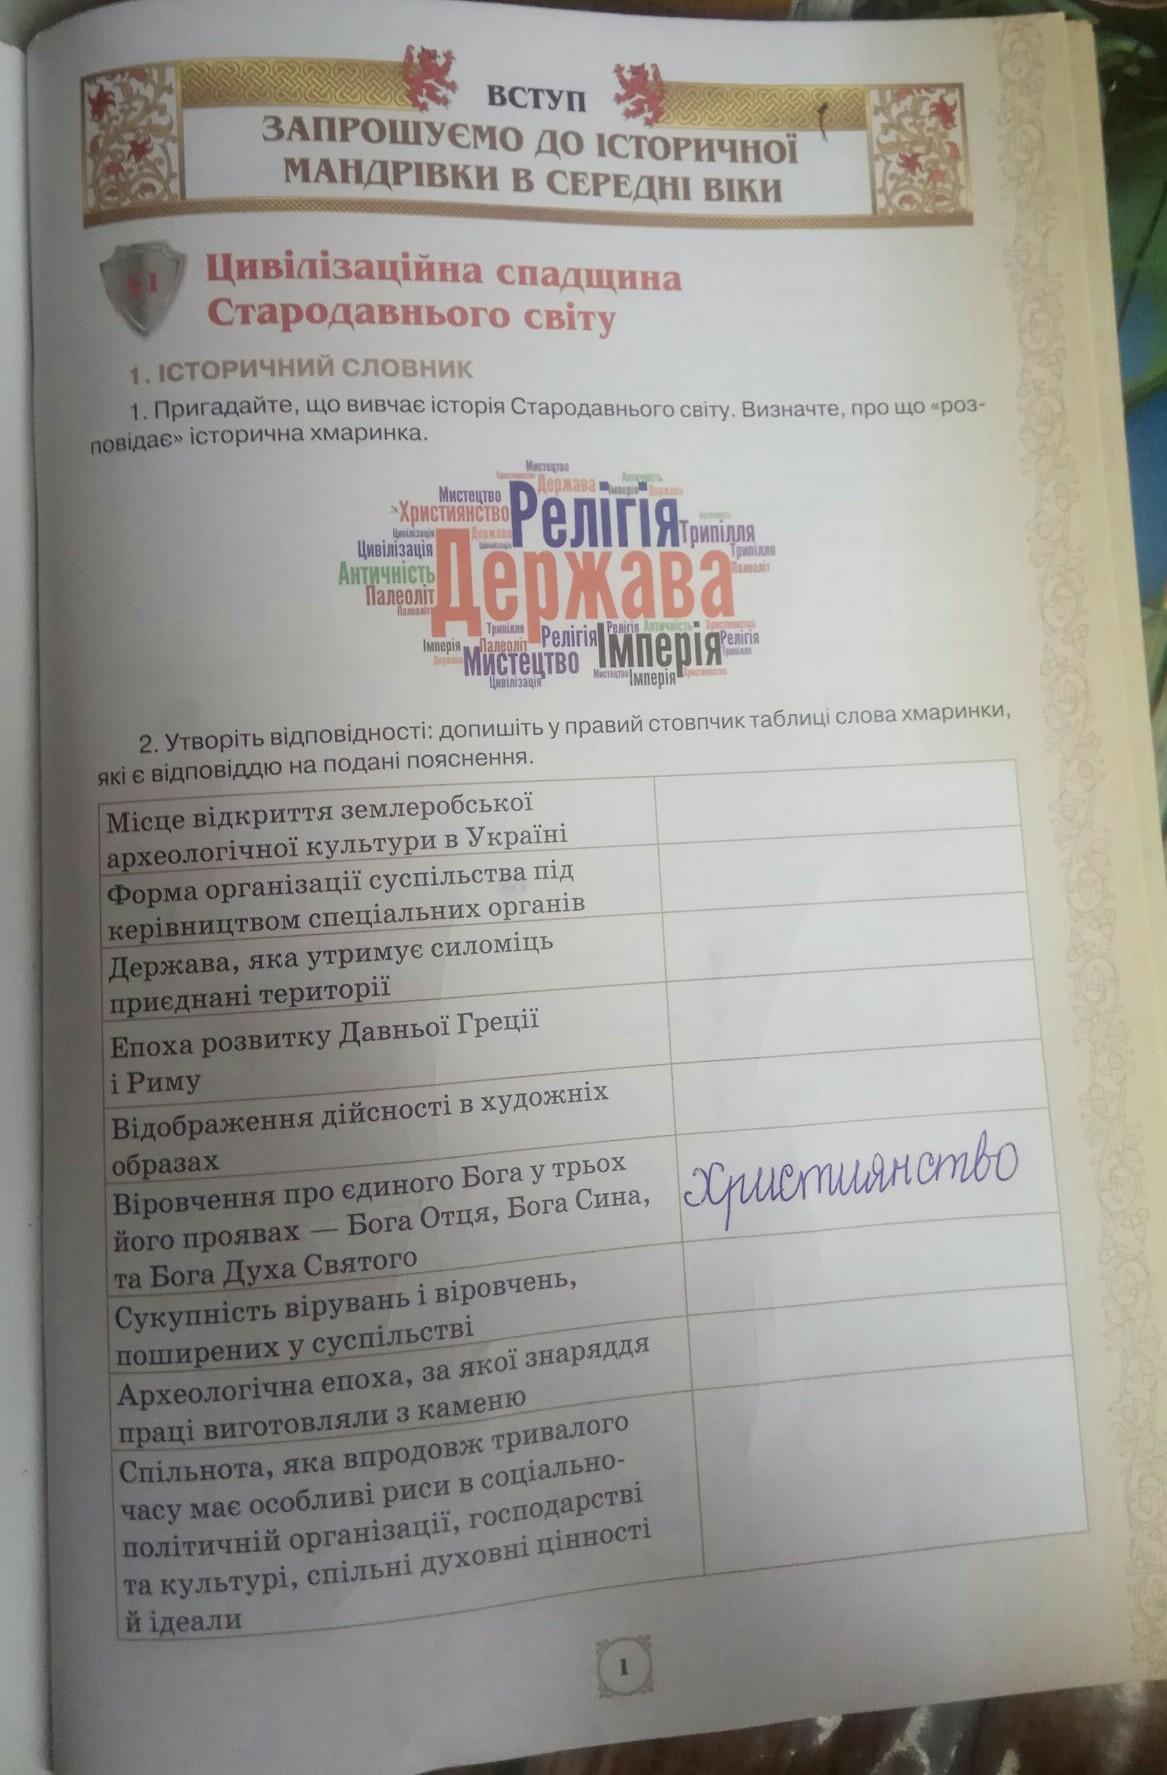 ВСТУП
ЗАПРОШУЄМО ДО ІСТОРИЧНОЇ
МАНДРІВКИ В СЕРЕДНІ ВІКИ
§ 1
Цивілізаційна спадщина
Стародавнього світу
1. ІСТОРИЧНИЙ СЛОВНИК
1. Пригадайте, що вивчає історія Стародавнього світу. Визначте, про що «роз-
повідає» історична хмаринка.
Мистецтво
Християнство Держава Античність
Мистецтво Релігія Імперія Держава
Християнство Античність
Цивілізація Держава Трипілля
Цивілізація Цивілізація Трипілля
Античність Держава Палеоліт
Палеоліт
Палеоліт
Трипілля Релігія Релігія Античність Християнство
Імперія Палеоліт Імперія Релігія
Держава Мистецтво Трипілля
Цивілізація Мистецтво Імперія Християнство
2. Утворіть відповідності: допишіть у правий стовпчик таблиці слова хмаринки,
які є відповіддю на подані пояснення.
Місце відкриття землеробської
археологічної культури в Україні
Форма організації суспільства під
керівництвом спеціальних органів
Держава, яка утримує силоміць
приєднані території
Епоха розвитку Давньої Греції
і Риму
Відображення дійсності в художніх
образах
Віровчення про єдиного Бога у трьох
його проявах — Бога Отця, Бога Сина,
та Бога Духа Святого
Християнство
Сукупність вірувань і віровчень,
поширених у суспільстві
Археологічна епоха, за якої знаряддя
праці виготовляли з каменю
Спільнота, яка впродовж тривалого
часу має особливі риси в соціально-
політичній організації, господарстві
та культурі, спільні духовні цінності
й ідеали
1